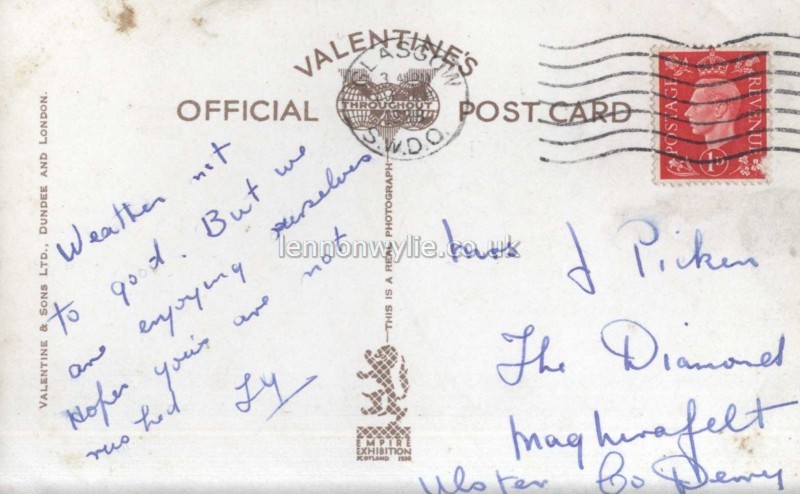 VALENTINE'S
OFFICIAL POST CARD
THROUGHOUT
GLASGOW
S.W.D.O.
POSTAGE REVENUE
1D
VALENTINE & SONS LTD., DUNDEE AND LONDON.
THIS IS A REAL PHOTOGRAPH
EMPIRE
EXHIBITION
SCOTLAND 1938
Weather not
to good. But we
are enjoying ourselves
Hopes your's are not
rushed
lennonwylie.co.uk
J Picken
The Diamond
Magherafelt
Ulster Co Derry